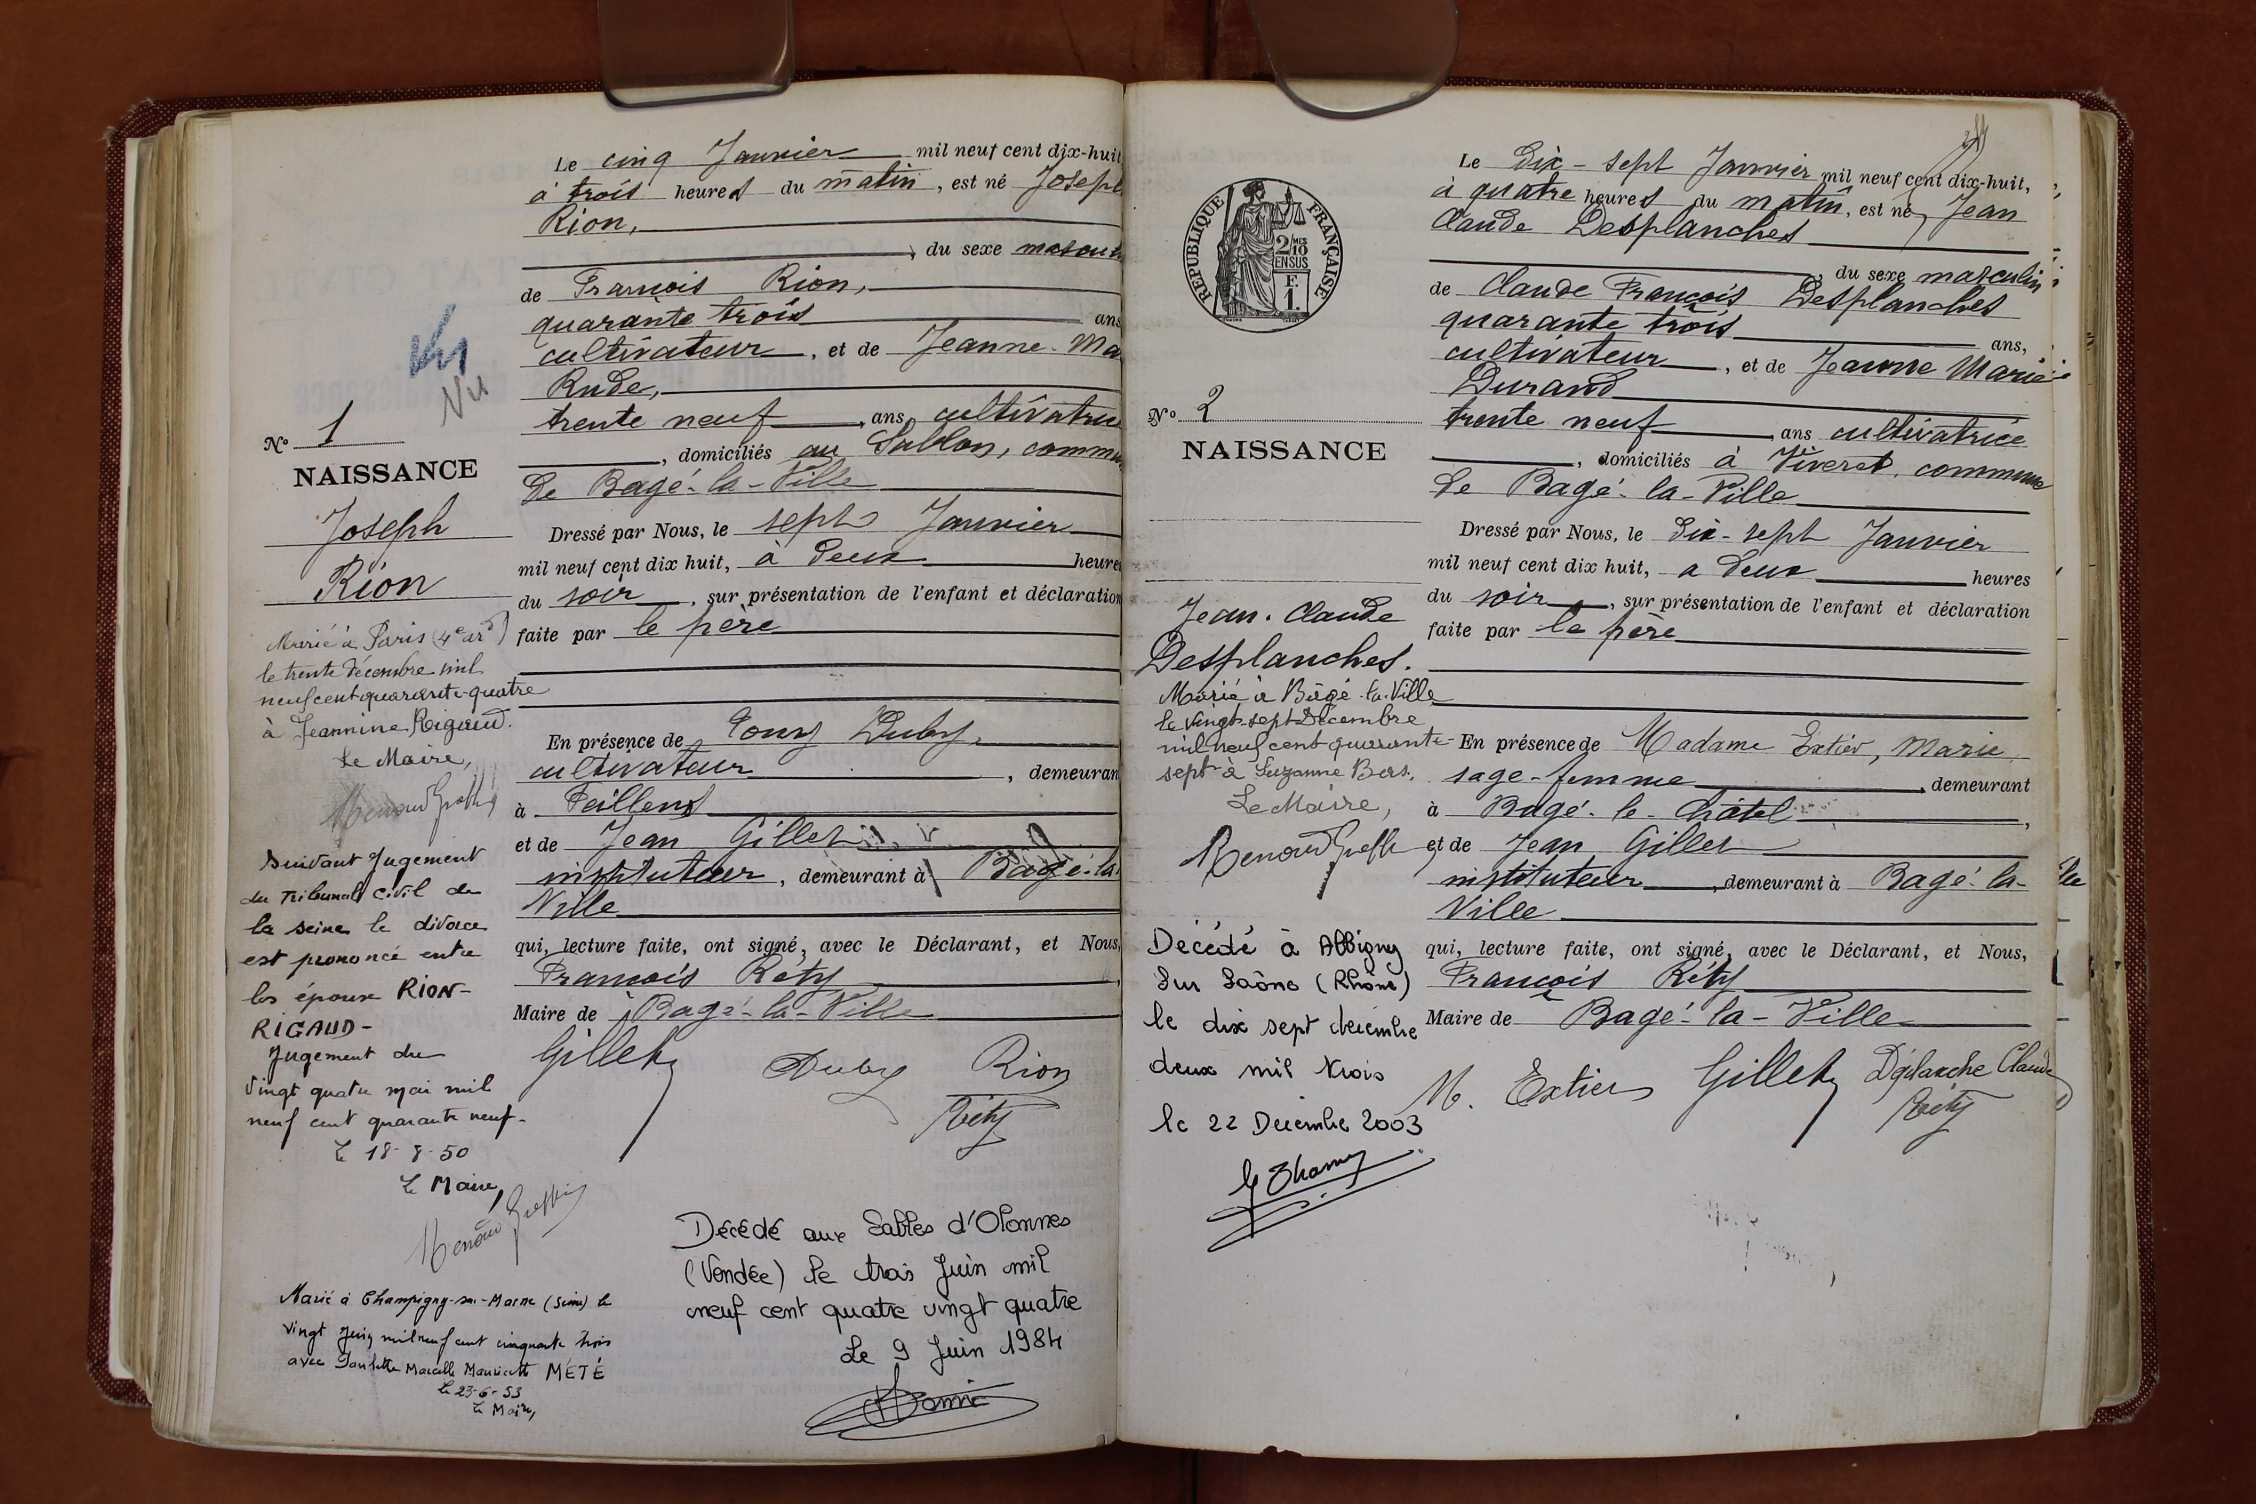 Le cinq Janvier mil neuf cent dix-huit
à trois heures du matin, est né Joseph
Rion,
, du sexe mascul
de François Rion,
quarante trois ans
cultivateur, et de Jeanne-Ma
Rude,
trente neuf, ans, cultivatrice
, domiciliés au Sablon, commu
de Bagé-la-Ville
Dressé par Nous, le sept Janvier
mil neuf cent dix huit, à deux heures
du soir, sur présentation de l'enfant et déclaration
faite par le père
En présence de Duby,
cultivateur, demeuran
à Feillens
et de Jean Gillet
instituteur, demeurant à Bagé-la-
Ville
qui, lecture faite, ont signé, avec le Déclarant, et Nous,
François Réty
Maire de Bagé-la-Ville
Gillet Duby Rion
Réty
Vu
No 1
NAISSANCE
Joseph
Rion
Marié à Paris (4e ardt)
le trente décembre mil
neuf cent quarante-quatre
à Jeannine Rigaud.
Le Maire,
Suivant Jugement
du Tribunal civil de
la Seine le divorce
est prononcé entre
les époux RION-
RIGAUD-
Jugement du
vingt quatre mai mil
neuf cent quarante neuf-
Le 18-8-50
Le Maire,
Marié à Champigny-sur-Marne (Seine) le
vingt Juin mil neuf cent cinquante trois
avec Paulette Marcelle Mauricette MÉTÉ
Le 23-6-53
Le Maire,
Décédé aux Sables d'Olonnes
(Vendée) le trois Juin mil
neuf cent quatre vingt quatre
Le 9 Juin 1984
RÉPUBLIQUE FRANÇAISE
2/10 MES
EN SUS
F.
1.
No 2
NAISSANCE
Jean-Claude
Desplanches.
Marié à Bâgé-la-Ville
le vingt-sept Décembre
mil neuf cent quarante-
sept à Suzanne
Le Maire,
Décédé à Albigny
sur Saône (Rhône)
le dix sept décembre
deux mil trois
le 22 Décembre 2003
Le Dix-sept Janvier mil neuf cent dix-huit,
à quatre heures du matin, est né Jean
Claude Desplanches
, du sexe masculin
de Claude François Desplanches
quarante trois ans,
cultivateur, et de Jeanne Marie
Durand
trente neuf, ans cultivatrice
, domiciliés à commune
de Bagé-la-Ville
Dressé par Nous, le dix-sept Janvier
mil neuf cent dix huit, a deux heures
du soir, sur présentation de l'enfant et déclaration
faite par le père
En présence de Madame Extier, Marie,
sage-femme, demeurant
à Bagé-le-Châtel,
et de Jean Gillet
instituteur, demeurant à Bagé-la-
Ville
qui, lecture faite, ont signé, avec le Déclarant, et Nous,
François Réty
Maire de Bagé-la-Ville
M. Extier Gillet Déplanche Claude
Réty